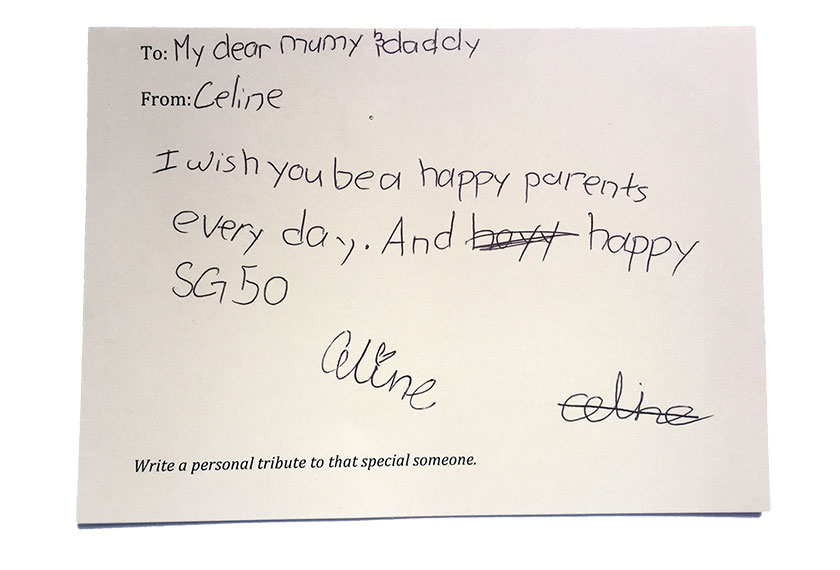 To: My dear mumy & daddy
From: Celine
I wish you be a happy parents
every day. And happy
SG50
Celine
celine
Write a personal tribute to that special someone.